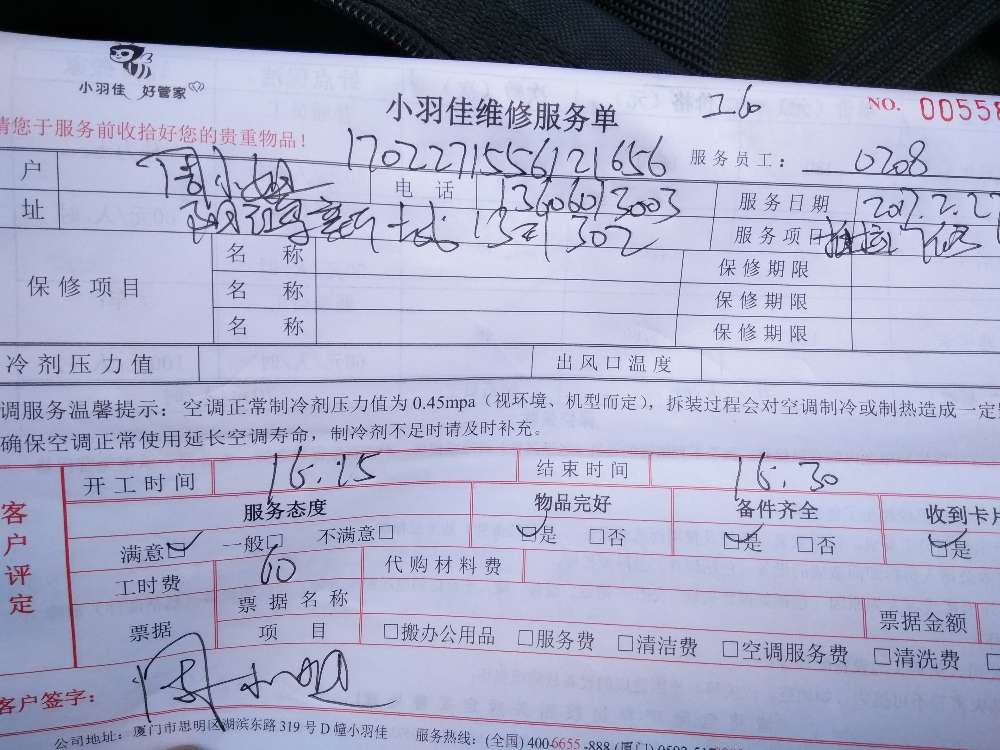 小羽佳 好管家
小羽佳维修服务单
NO. 00558
请您于服务前收拾好您的贵重物品！
1702271556121656
服务员工： 0208
户 周小姐 电话 13606013003 服务日期 2017.2.27
址 302 服务项目
保修项目 名称 保修期限
名称 保修期限
名称 保修期限
冷剂压力值 出风口温度
调服务温馨提示：空调正常制冷剂压力值为0.45mpa（视环境、机型而定），拆装过程会对空调制冷或制热造成一定
确保空调正常使用延长空调寿命，制冷剂不足时请及时补充。
客户评定
开工时间 16:15 结束时间 16:30
服务态度 物品完好 备件齐全 收到卡片
满意☑ 一般□ 不满意□ ☑是 □否 ☑是 □否 ☑是
工时费 60 代购材料费
票据 票据名称 票据金额
项目 □搬办公用品 □服务费 □清洁费 □空调服务费 □清洗费 □
客户签字： 周小姐
公司地址：厦门市思明区湖滨东路319号D幢小羽佳 服务热线：(全国) 400-6655-888 (厦门) 0592-517